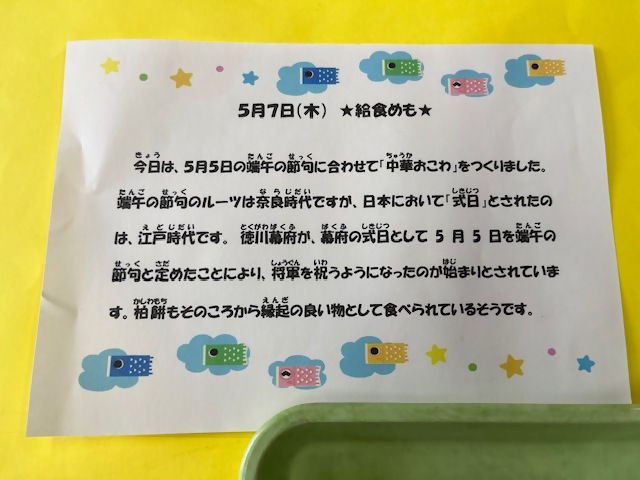 5月7日(木) ★給食めも★
今日は、5月5日の端午の節句に合わせて「中華おこわ」をつくりました。
端午の節句のルーツは奈良時代ですが、日本において「式日」とされたの
は、江戸時代です。 徳川幕府が、幕府の式日として 5 月 5 日を端午の
節句と定めたことにより、将軍を祝うようになったのが始まりとされていま
す。柏餅もそのころから縁起の良い物として食べられているそうです。